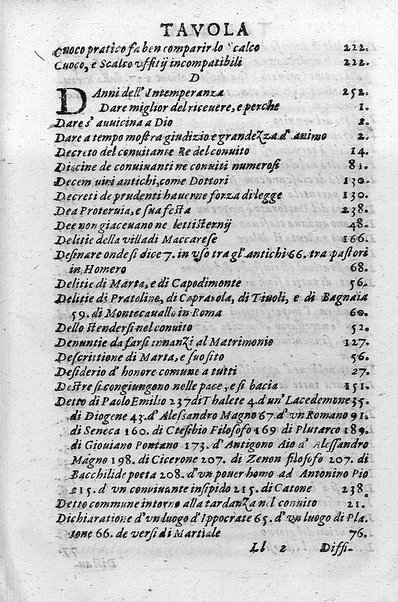 TAVOLA
Cuoco pratico fa ben comparir lo Scalco 222.
Cuoco, e Scalco vffitij incompatibili 222.
D
DAnni dell'Intemperanza 252.
Dare miglior del riceuere, e perche 1.
Dare s'auuicina a Dio 2.
Dare a tempo mostra giudizio e grandezza d'animo 2.
Decreto del conuitante Re del conuito 14.
Diecine de conuiuanti ne conuiti numerosi 81.
Decem uiri antichi, come Dottori 130.
Decreti de prudenti hauerne forza di legge 130.
Dea Proteruia, e sua festa 238.
Dee non giaceuano ne lettisternij 48.
Delitie della villa di Maccarese 166.
Desinare onde si dice 7. in vso tra gl'antichi 66. tra pastori
in Homero 68.
Delitie di Marta, e di Capodimonte 56.
Delitie di Pratoline, di Caprarola, di Tiuoli, e di Bagnaia
59. di Montecauallo in Roma 60.
Dello stendersi nel conuito 52.
Denuntie da farsi innanzi al Matrimonio 127.
Descrittione di Marta, e suo sito 56.
Desiderio d'honore comune a tutti 27.
Destre si congiungono nelle pace, e si bacia 151.
Detto di Paolo Emilio 237 di Thalete 4. d'un'Lacedemone 35.
di Diogene 43. d'Alessandro Magno 67. d'vn Romano 91.
di Seneca 160. di Ctesibio Filosofo 169 di Plutarco 189.
di Giouiano Pontano 173. d'Antigono Aio d'Alessandro
Magno 198. di Cicerone 207. di Zenon filosofo 207. di
Bacchilide poeta 208. d'vn pouer homo ad Antonino Pio
215. d'vn conuiuante insipido 215. di Catone 238
Detto commune intorno alla tardanza nel conuito 21.
Dichiaratione d'vn luogo d'Ippocrate 65. d'vn luogo di Pla
tone 66. de versi di Martiale 76.
Ll 2 Diffi-